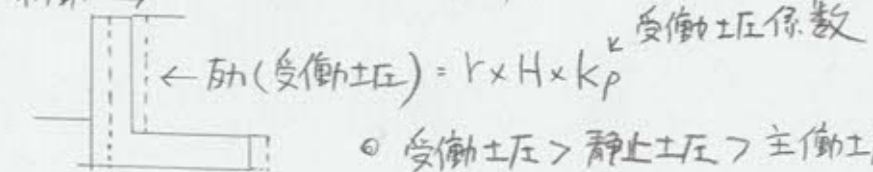 受働土圧係数
← 土圧(受働土圧) = γ × H × Kp
◎ 受働土圧 > 静止土圧 > 主働土